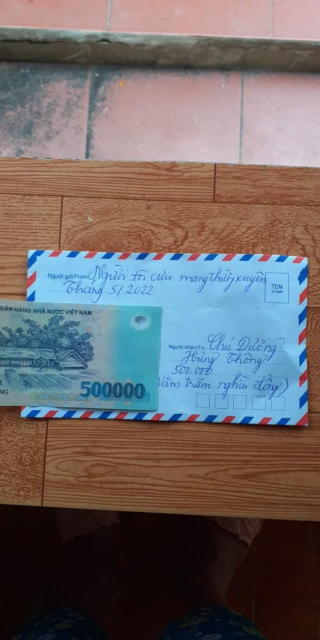 Người gửi/From: Người tôi cưu mang thường xuyên
Tháng 5/2022
TEM
NGÂN HÀNG NHÀ NƯỚC VIỆT NAM
Người nhận/To: Chú Dưỡng
Hùng Thông
500.000
(Năm trăm nghìn đồng)
500000